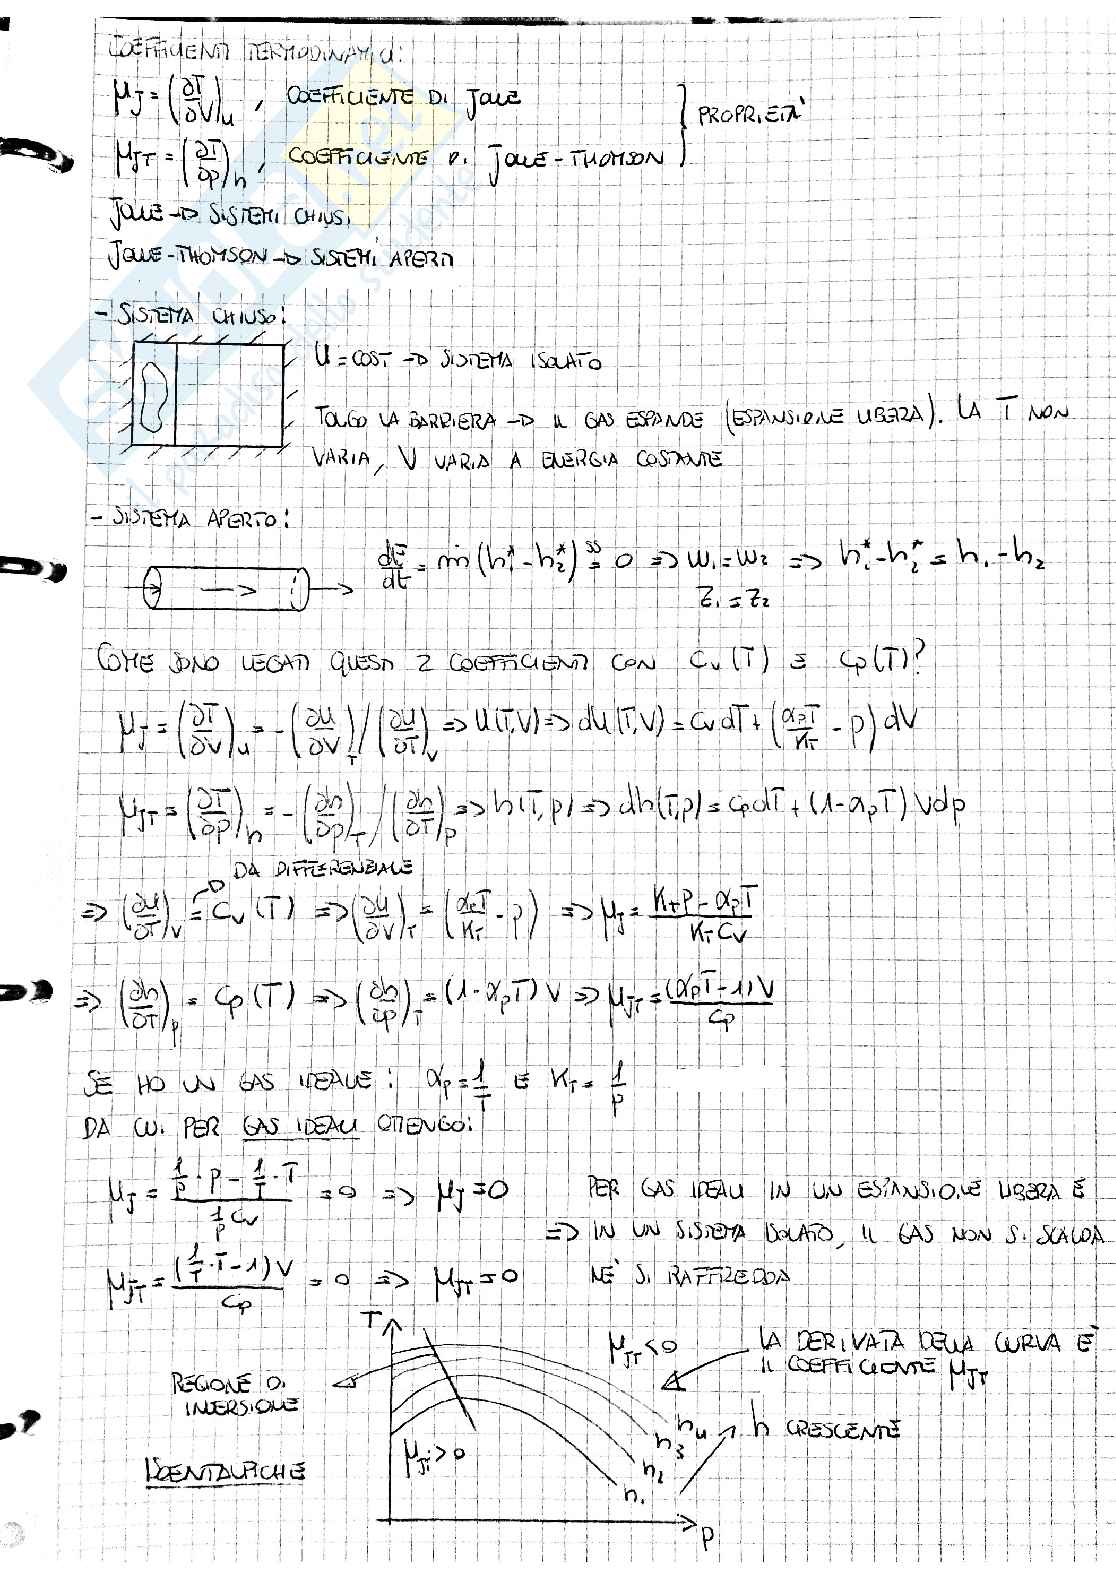 COEFFICIENTI TERMODINAMICI:
μJ = (∂T/∂V)u , COEFFICIENTE DI JOULE
μJT = (∂T/∂p)h , COEFFICIENTE DI JOULE-THOMSON } PROPRIETÀ
JOULE → SISTEMI CHIUSI
JOULE-THOMSON → SISTEMI APERTI
- SISTEMA CHIUSO:
U = COST → SISTEMA ISOLATO
TOLGO LA BARRIERA → IL GAS ESPANDE (ESPANSIONE LIBERA). LA T NON
VARIA, V VARIA A ENERGIA COSTANTE
- SISTEMA APERTO:
dE/dt = ṁ(h1* - h2*) =ss 0 ⇒ w1 = w2 ⇒ h1* - h2* = h1 - h2
z1 = z2
COME SONO LEGATI QUESTI 2 COEFFICIENTI CON Cv(T) E Cp(T)?
μJ = (∂T/∂V)u = -(∂u/∂V)T / (∂u/∂T)V ⇒ u(T,V) ⇒ du(T,V) = CvdT + (αpT/KT - p) dV
μJT = (∂T/∂p)h = -(∂h/∂p)T / (∂h/∂T)p ⇒ h(T,p) ⇒ dh(T,p) = CpdT + (1-αpT) Vdp
DA DIFFERENZIALE
⇒ (∂u/∂T)V = Cv(T) ⇒ (∂u/∂V)T = (αpT/KT - p) ⇒ μJ = (KTp - αpT)/(KT Cv)
⇒ (∂h/∂T)p = Cp(T) ⇒ (∂h/∂p)T = (1-αpT) V ⇒ μJT = (αpT-1)V/Cp
SE HO UN GAS IDEALE: αp = 1/T E KT = 1/p
DA CUI PER GAS IDEALI OTTENGO:
μJ = (1/p · p - 1/T · T)/(1/p Cv) = 0 ⇒ μJ = 0 PER GAS IDEALI IN UN ESPANSIONE LIBERA E
⇒ IN UN SISTEMA ISOLATO, IL GAS NON SI SCALDA
μJT = (1/T · T - 1)V/Cp = 0 ⇒ μJT = 0 NE' SI RAFFREDDA
T
μJT < 0
LA DERIVATA DELLA CURVA E'
IL COEFFICIENTE μJT
REGIONE DI
INVERSIONE
h4
h3
h2
h1
h CRESCENTE
μJT > 0
ISOENTALPICHE
p